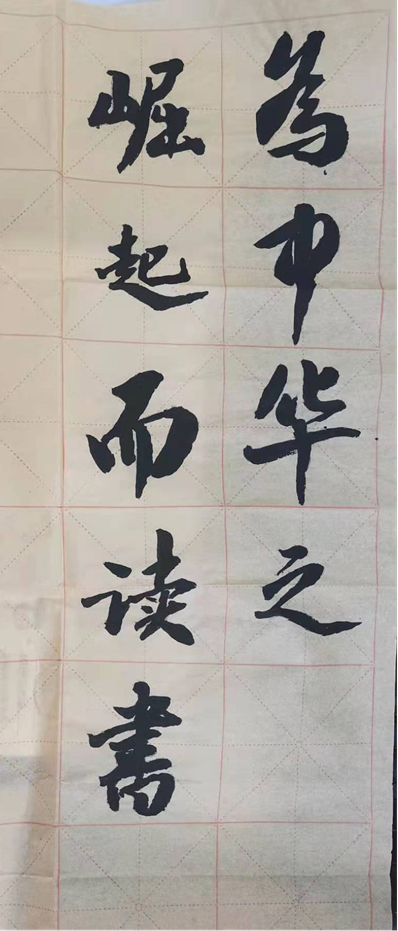 為中华之
崛起而读書